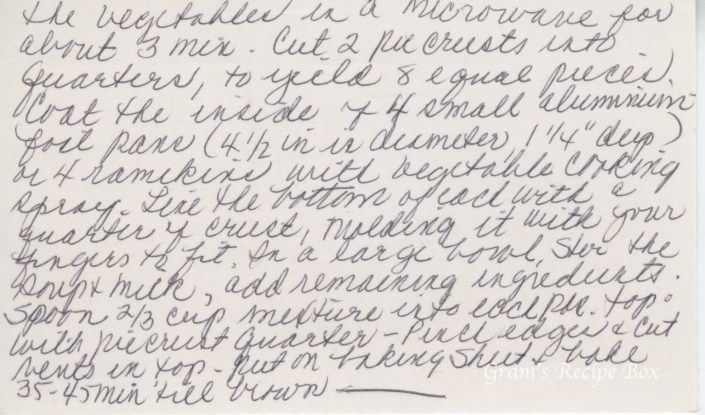 the vegetables in a microwave for
about 3 min. Cut 2 piecrusts into
quarters, to yield 8 equal pieces.
Coat the inside of 4 small aluminum
foil pans (4 1/2 in in diameter, 1 1/4" deep)
or 4 ramekins with vegetable cooking
spray. Line the bottom of each with a
quarter of crust, molding it with your
fingers to fit. In a large bowl, stir the
soup & milk, add remaining ingredients.
Spoon 2/3 cup mixture into each pie. Top
with piecrust quarter - Pinch edges & cut
vents in top - put on baking sheet & bake
35-45 min till brown
Gram's Recipe Box